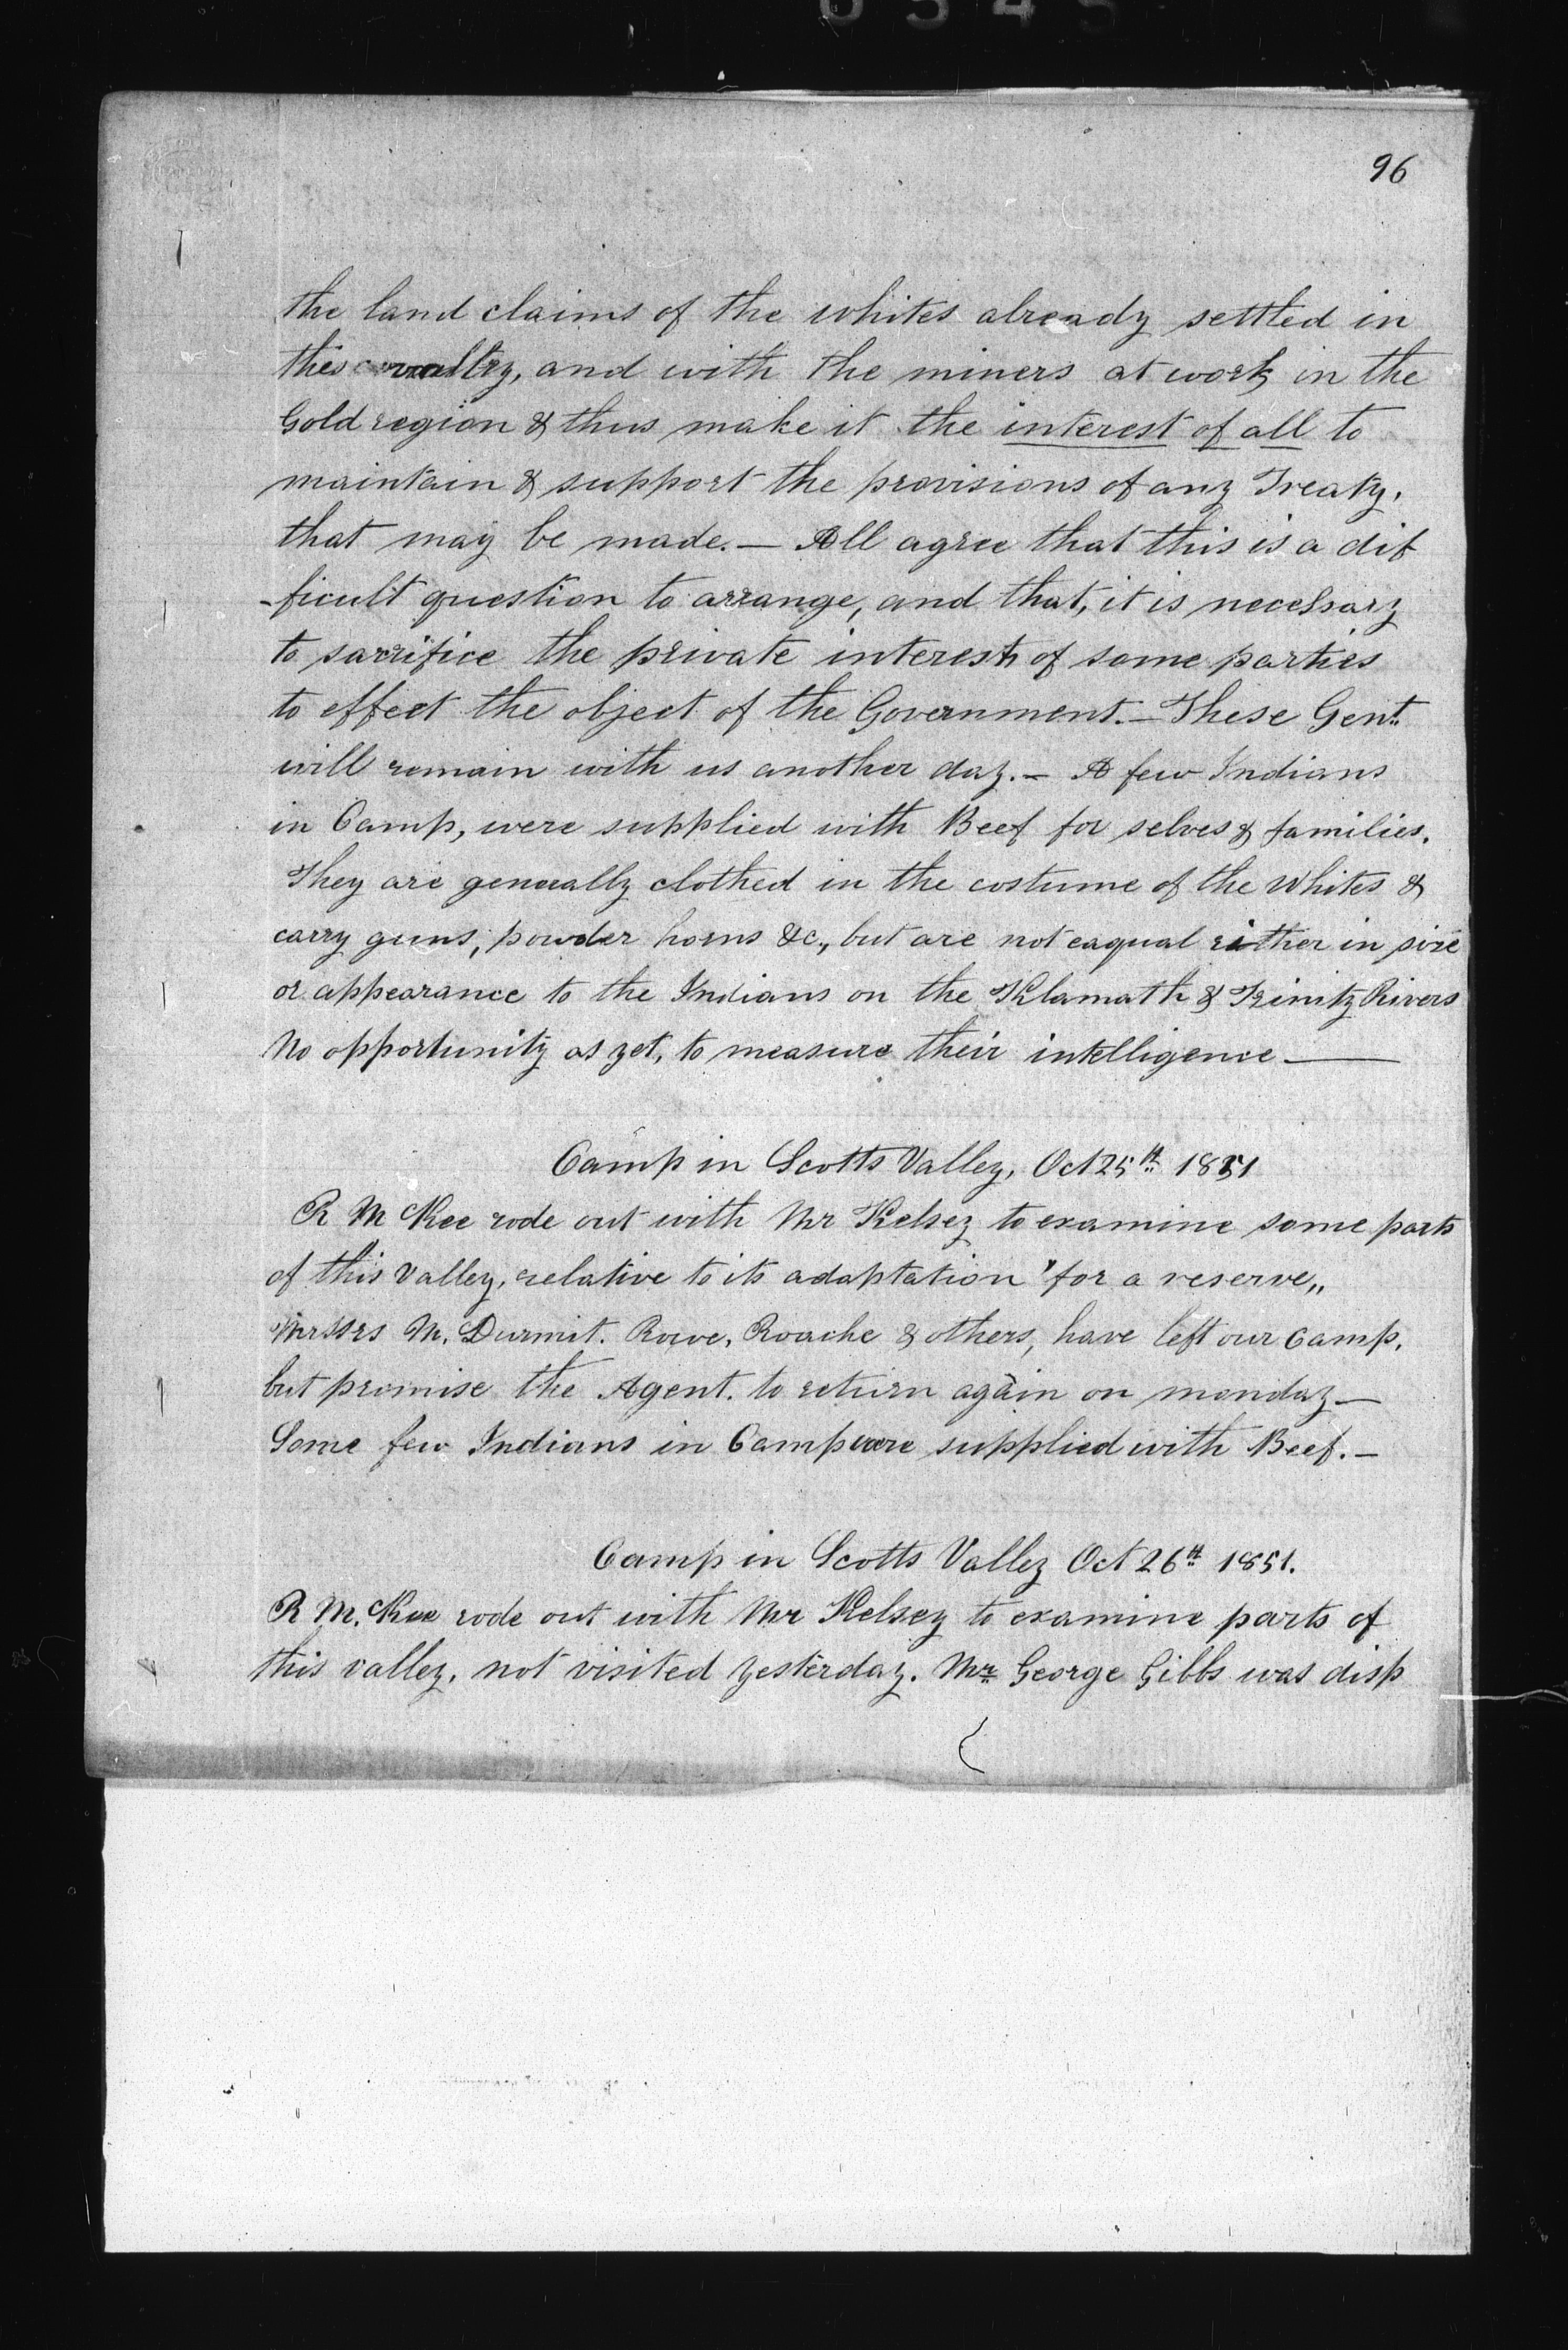 96
the land claims of the whites already settled in
this valley, and with the miners at work in the
Gold region & thus make it the interest of all to
maintain & support the provisions of any Treaty,
that may be made. — All agree that this is a dif
-ficult question to arrange, and that, it is necessary
to sacrifice the private interests of some parties
to effect the object of the Government. — These Gent.
will remain with us another day. — A few Indians
in Camp, were supplied with Beef for selves & families.
They are generally clothed in the costume of the whites &
carry guns, powder horns &c., but are not eaqual either in size
or appearance to the Indians on the Klamath & Trinity Rivers
No opportunity as yet, to measure their intelligence —
Camp in Scotts Valley, Oct 25th 1851
R McKee rode out with Mr Kelsey to examine some parts
of this Valley, relative to its adaptation "for a reserve,,
Messrs M. Durmit. Rowe, Roache & others, have left our camp,
but promise the Agent. to return again on monday —
Some few Indians in Camp were supplied with Beef. —
Camp in Scotts Valley Oct 26th 1851.
R M. Kee rode out with Mr Kelsey to examine parts of
this valley, not visited yesterday. Mr George Gibbs was disp